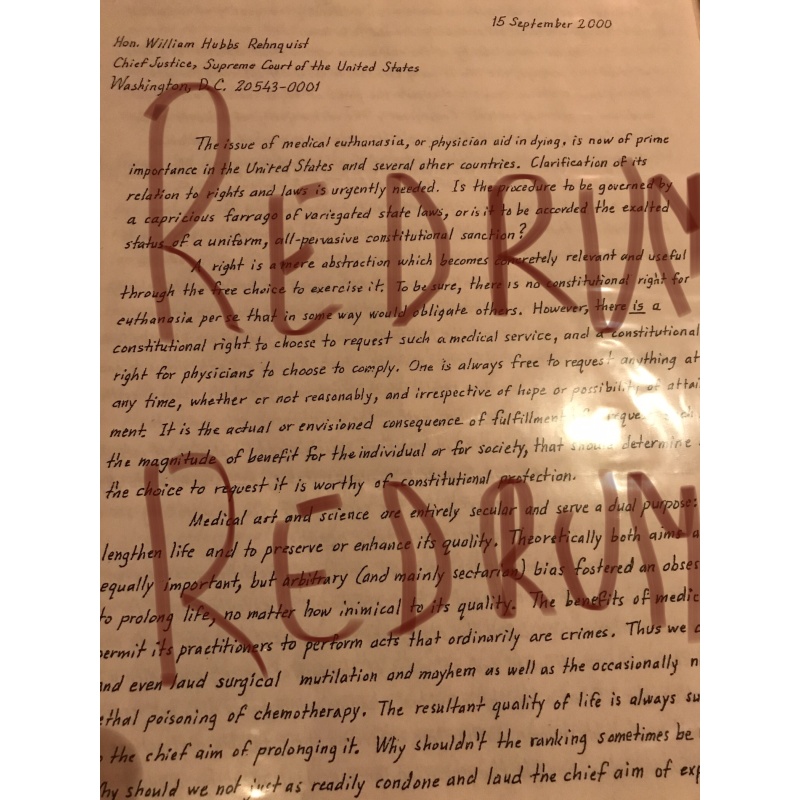 15 September 2000
Hon. William Hubbs Rehnquist
Chief Justice, Supreme Court of the United States
Washington, D.C. 20543-0001
The issue of medical euthanasia, or physician aid in dying, is now of prime
importance in the United States and several other countries. Clarification of its
relation to rights and laws is urgently needed. Is the procedure to be governed by
a capricious farrago of variegated state laws, or is it to be accorded the exalted
status of a uniform, all-pervasive constitutional sanction?
A right is a mere abstraction which becomes concretely relevant and useful
through the free choice to exercise it. To be sure, there is no constitutional right for
euthanasia per se that in some way would obligate others. However, there is a
constitutional right to choose to request such a medical service, and a constitutional
right for physicians to choose to comply. One is always free to request anything at
any time, whether or not reasonably, and irrespective of hope or possibility of attai
ment. It is the actual or envisioned consequence of fulfillment
the magnitude of benefit for the individual or for society, that should determine
the choice to request it is worthy of constitutional protection.
REDRUM
Medical art and science are entirely secular and serve a dual purpose:
lengthen life and to preserve or enhance its quality. Theoretically both aims a
equally important, but arbitrary (and mainly sectarian) bias fostered an obses
to prolong life, no matter how inimical to its quality. The benefits of medic
permit its practitioners to perform acts that ordinarily are crimes. Thus we
and even laud surgical mutilation and mayhem as well as the occasionally n
ethal poisoning of chemotherapy. The resultant quality of life is always su
the chief aim of prolonging it. Why shouldn't the ranking sometimes be
hy should we not just as readily condone and laud the chief aim of exp
REDRUM